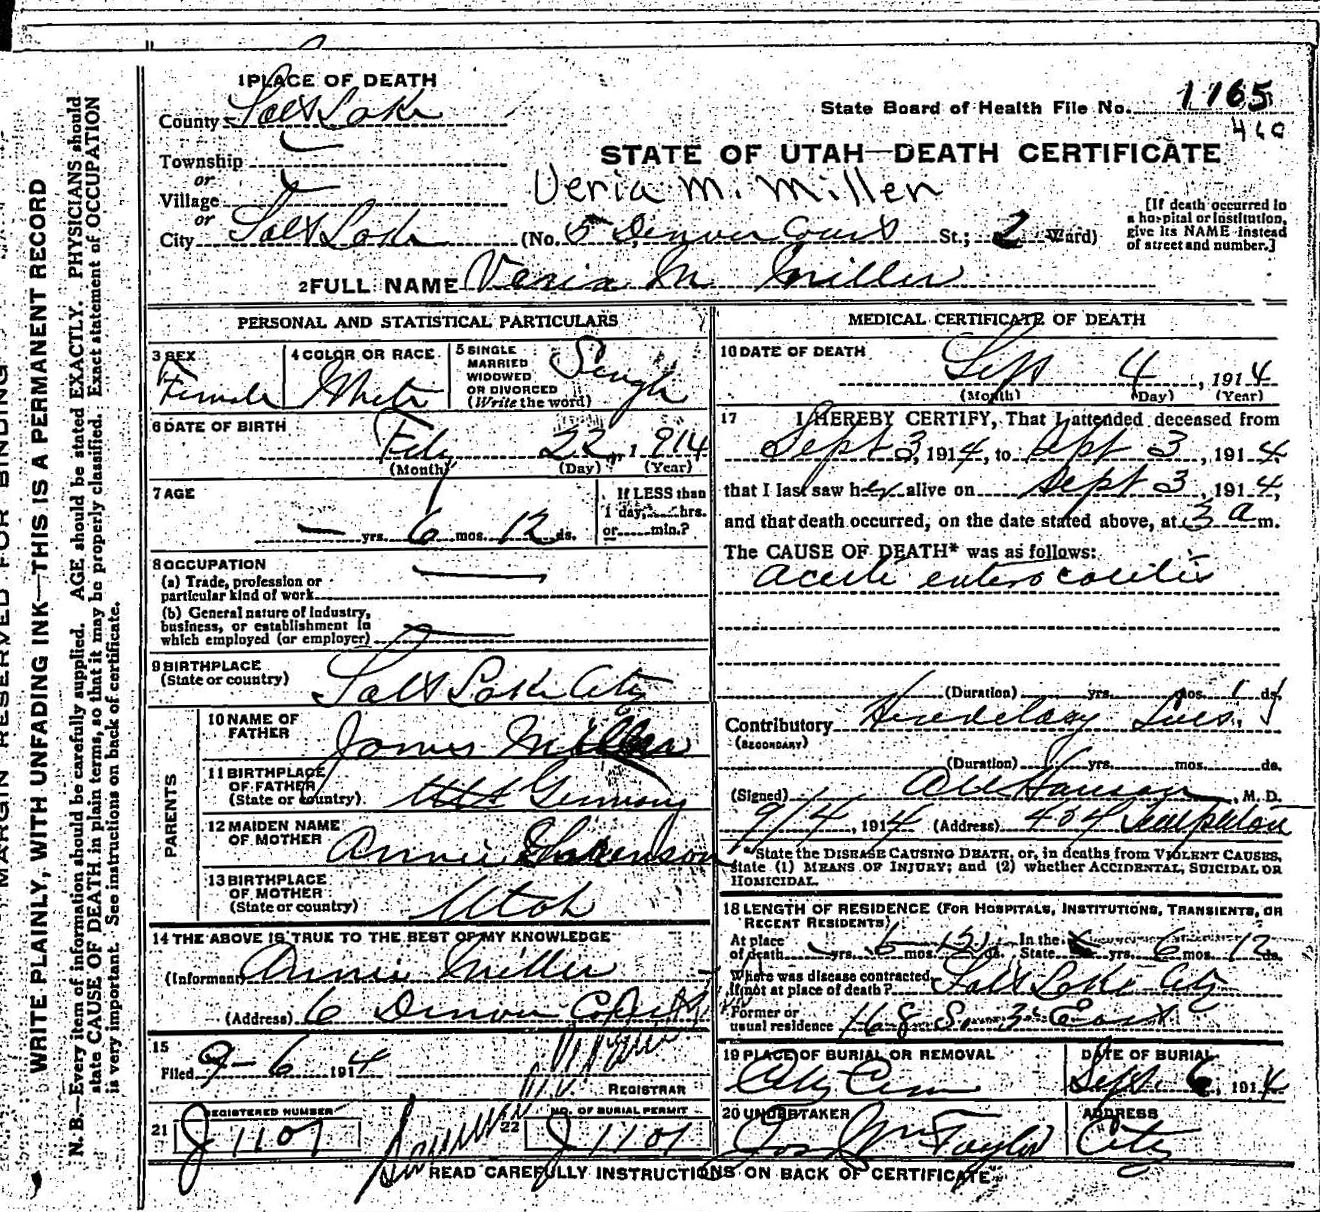 MARGIN RESERVED FOR BINDING
WRITE PLAINLY, WITH UNFADING INK—THIS IS A PERMANENT RECORD
N. B.—Every item of information should be carefully supplied. AGE should be stated EXACTLY. PHYSICIANS should
state CAUSE OF DEATH in plain terms, so that it may be properly classified. Exact statement of OCCUPATION
is very important. See instructions on back of certificate.
1 PLACE OF DEATH
County Salt Lake
State Board of Health File No. 1165
460
Township
or
STATE OF UTAH—DEATH CERTIFICATE
Village
or
Veria M. Miller
City Salt Lake (No. 5 Denver Court St.; 2 Ward)
[If death occurred in
a hospital or institution,
give its NAME instead
of street and number.]
2 FULL NAME Veria M Miller
PERSONAL AND STATISTICAL PARTICULARS
3 SEX
Female
4 COLOR OR RACE
White
5 SINGLE
MARRIED
WIDOWED
OR DIVORCED
(Write the word)
Single
6 DATE OF BIRTH
Feby 22, 1914
(Month) (Day) (Year)
7 AGE
— yrs. 6 mos. 12 ds.
If LESS than
1 day, hrs.
or min.?
8 OCCUPATION
(a) Trade, profession or
particular kind of work
(b) General nature of Industry,
business, or establishment in
which employed (or employer)
9 BIRTHPLACE
(State or country) Salt Lake City
PARENTS
10 NAME OF
FATHER James Miller
11 BIRTHPLACE
OF FATHER
(State or country) Germany
12 MAIDEN NAME
OF MOTHER Annie
13 BIRTHPLACE
OF MOTHER
(State or country) Utah
14 THE ABOVE IS TRUE TO THE BEST OF MY KNOWLEDGE
(Informant) Annie Miller
(Address) 6 Denver Court
15
Filed 9-6 1914
REGISTRAR
REGISTERED NUMBER
21 J 1107
NO. OF BURIAL PERMIT
22 J 1107
MEDICAL CERTIFICATE OF DEATH
16 DATE OF DEATH
Sept 4, 1914
(Month) (Day) (Year)
17 I HEREBY CERTIFY, That I attended deceased from
Sept 3, 1914, to Sept 3, 1914,
that I last saw her alive on Sept 3, 1914,
and that death occurred, on the date stated above, at 3 a m.
The CAUSE OF DEATH* was as follows:
Acute entero colitis
(Duration) yrs. mos. 1 ds.
Contributory Hereditary Lues.
(SECONDARY)
(Duration) yrs. mos. ds.
(Signed) Hanson, M. D.
9/4, 1914 (Address) 404 Templeton
*State the DISEASE CAUSING DEATH, or, in deaths from VIOLENT CAUSES,
state (1) MEANS OF INJURY; and (2) whether ACCIDENTAL, SUICIDAL OR
HOMICIDAL.
18 LENGTH OF RESIDENCE (FOR HOSPITALS, INSTITUTIONS, TRANSIENTS, OR
RECENT RESIDENTS)
At place
of death yrs. 6 mos. 12 ds. In the
State yrs. 6 mos. 12 ds.
Where was disease contracted,
if not at place of death? Salt Lake City
Former or
usual residence 168 S. 3 East
19 PLACE OF BURIAL OR REMOVAL
City Cem
DATE OF BURIAL
Sept. 6, 1914
20 UNDERTAKER
Jos Wm Taylor
ADDRESS
City
READ CAREFULLY INSTRUCTIONS ON BACK OF CERTIFICATE